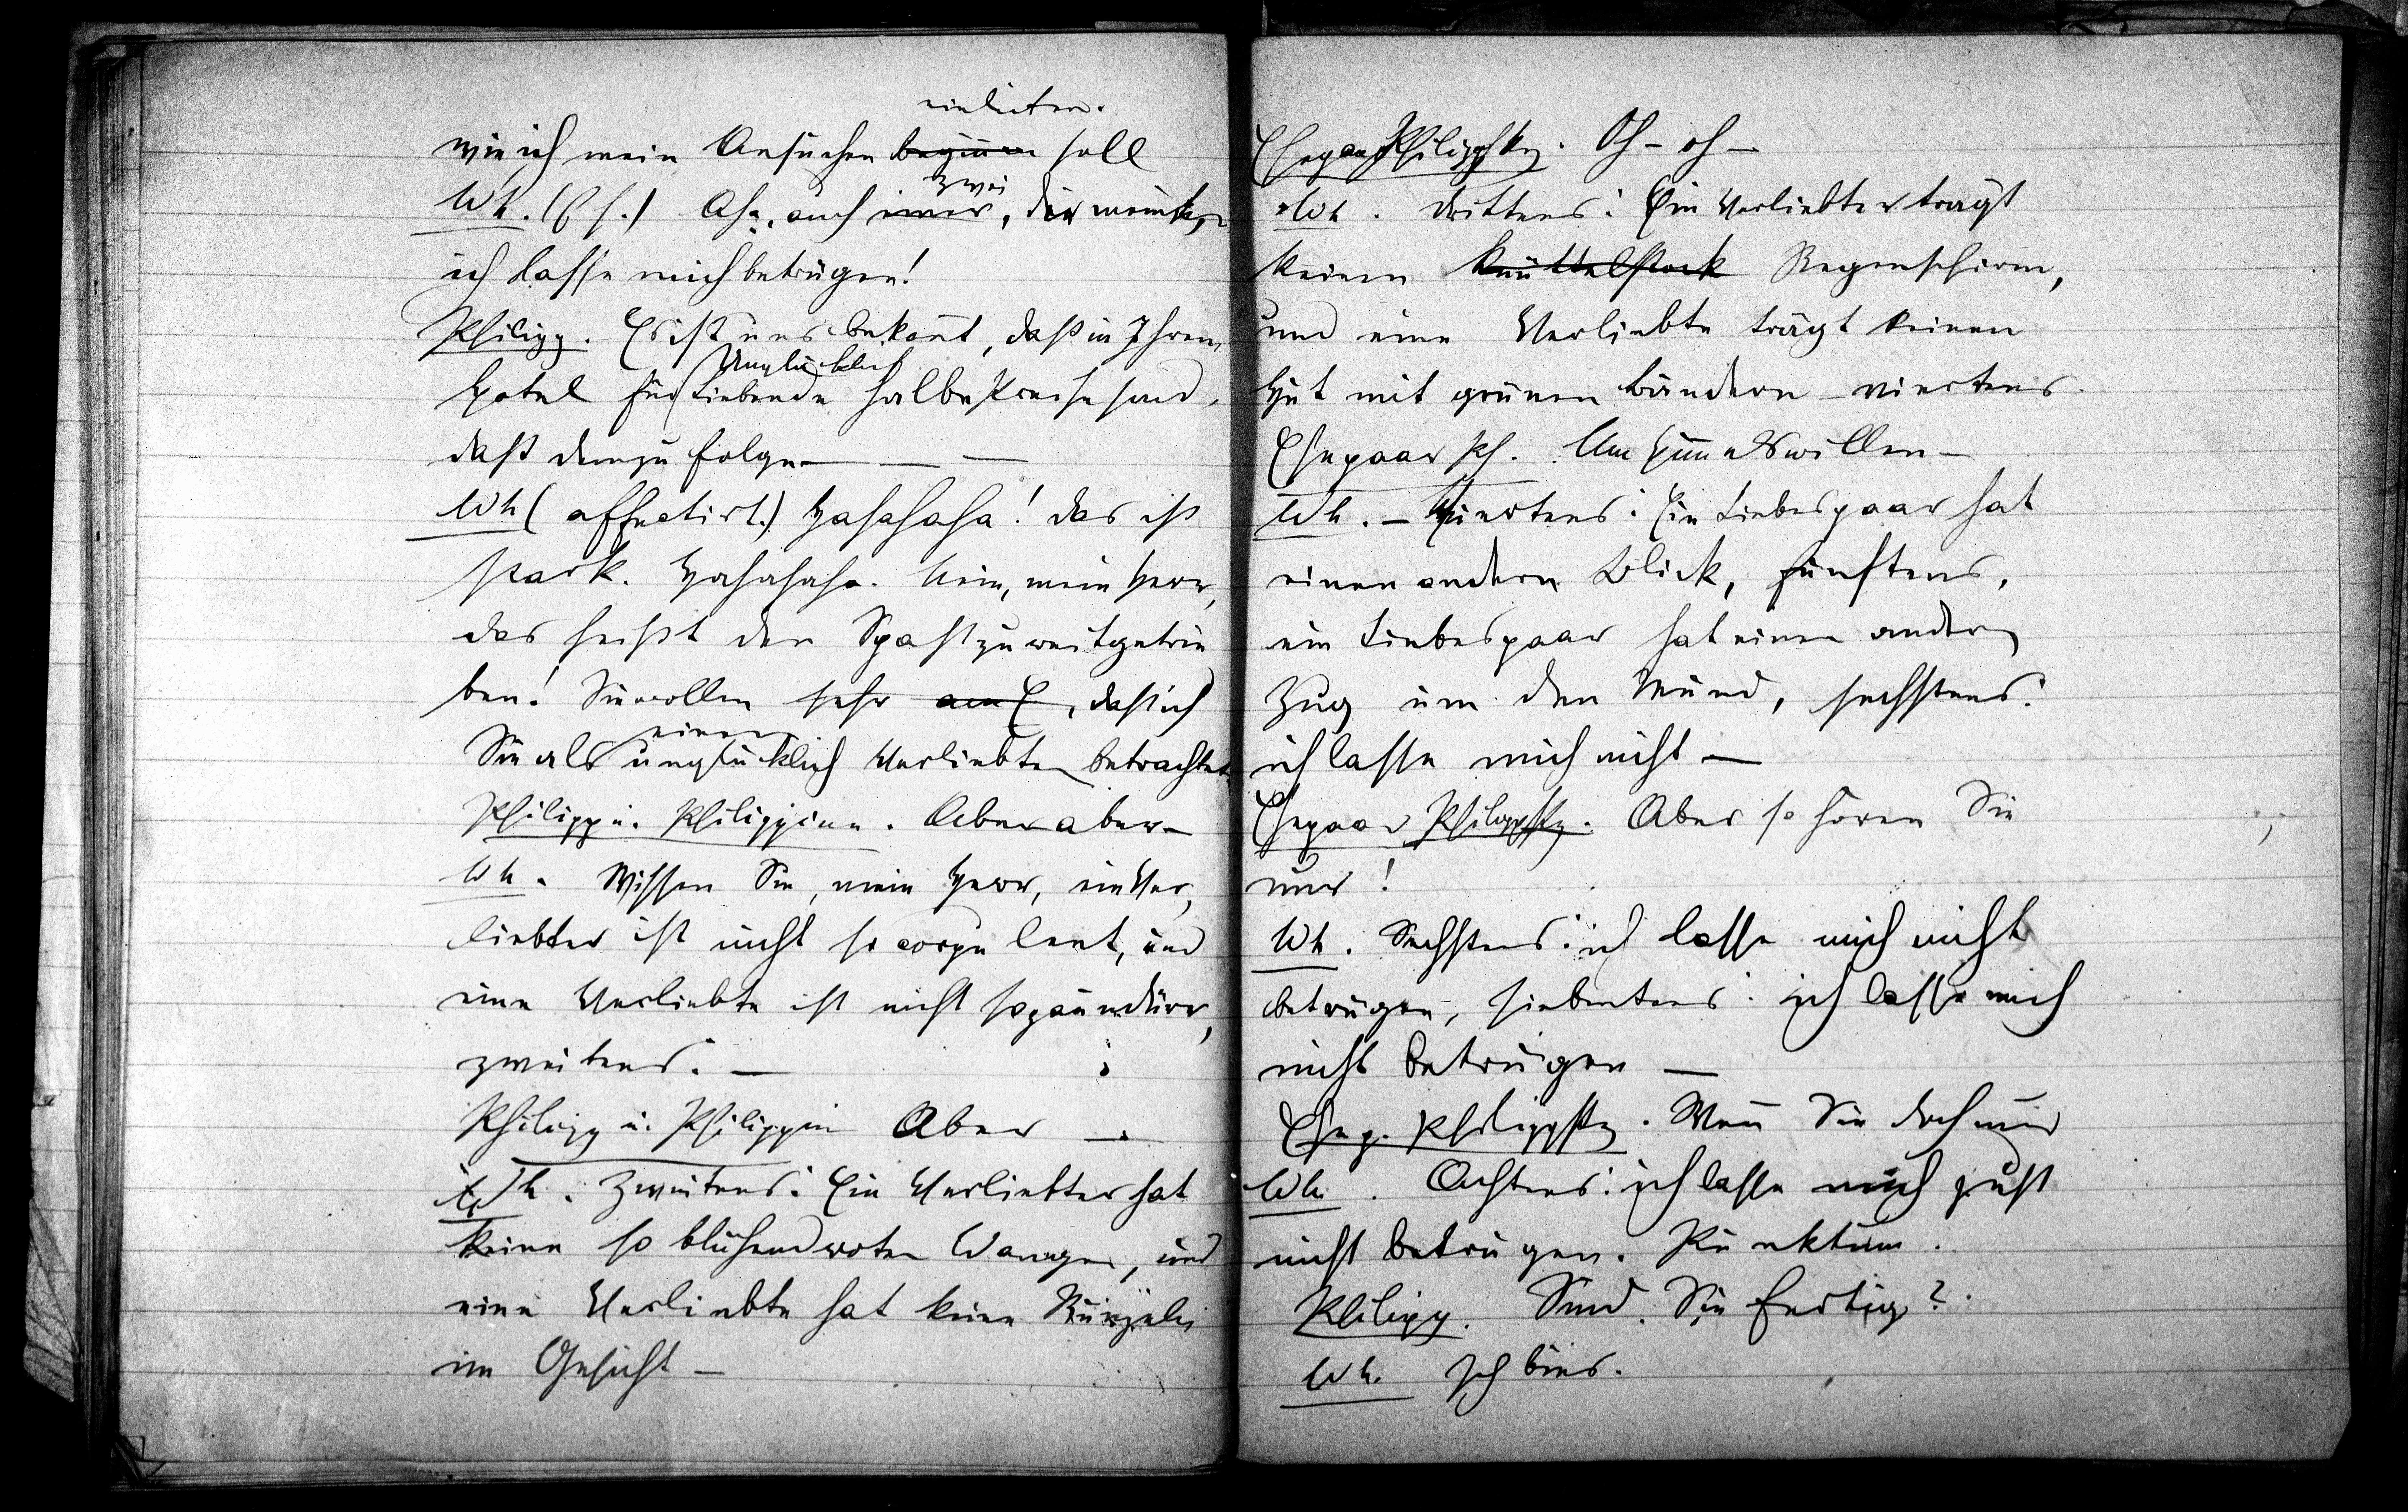 einleiten.
wie ich mein Ansuchen beginnen soll
Wh. (f. s.) Aha, auch einer, zwei die meinten,
ich lasse mich betrügen!
Philipp. Es ist uns bekannt, daß in Ihrem
Unglücklich
Hotel für Liebende halbe Preise sind,
daß demzufolge — — —
Wh (affectirt.) Hahahaha! das ist
stark. Hahahaha. Nein, mein Herr,
das heißt den Spaß zu weit getrie
ben! Sie wollen sehr am E, daß ich
einen
Sie als unglücklich Verliebten betrachte
Philipp u. Philippine. Aber aber –
Wh. Wissen Sie, mein Herr, ein Ver,
liebter ist nicht so corpulent, und
eine Verliebte ist nicht so zaundürr,
zweitens. —
Philipp u. Philippin Aber —.
Wh. Zweitens: Ein Verliebter hat
keine so blühend roten Wangen, und
eine Verliebte hat keine Runzeln
im Gesicht —
Ehepaar Philippsky. Oh – oh –
Wh. Drittens: Ein Verliebter trägt
keinen Knüttelstock Regenschirm,
und eine Verliebte trägt keinen
Hut mit grünen Bändern – viertens.
Ehepaar Ph. Um Himmelswillen –
Wh. – Viertens: Ein Liebespaar hat
einen andern Blick, fünftens,
ein Liebespaar hat einen andern
Zug um den Mund, sechstens:
ich lasse mich nicht —
Ehepaar Philippsky. Aber so hören Sie
nur!
Wh. Sechstens: ich lasse mich nicht
betrügen, siebentens: ich lasse mich
nicht betrügen —
Ehep. Philippsky. Wenn Sie doch nur
Wh. Achtens: ich lasse mich just
nicht betrügen. Punktum.
Philipp. Sind Sie fertig?
Wh. Ich bins.